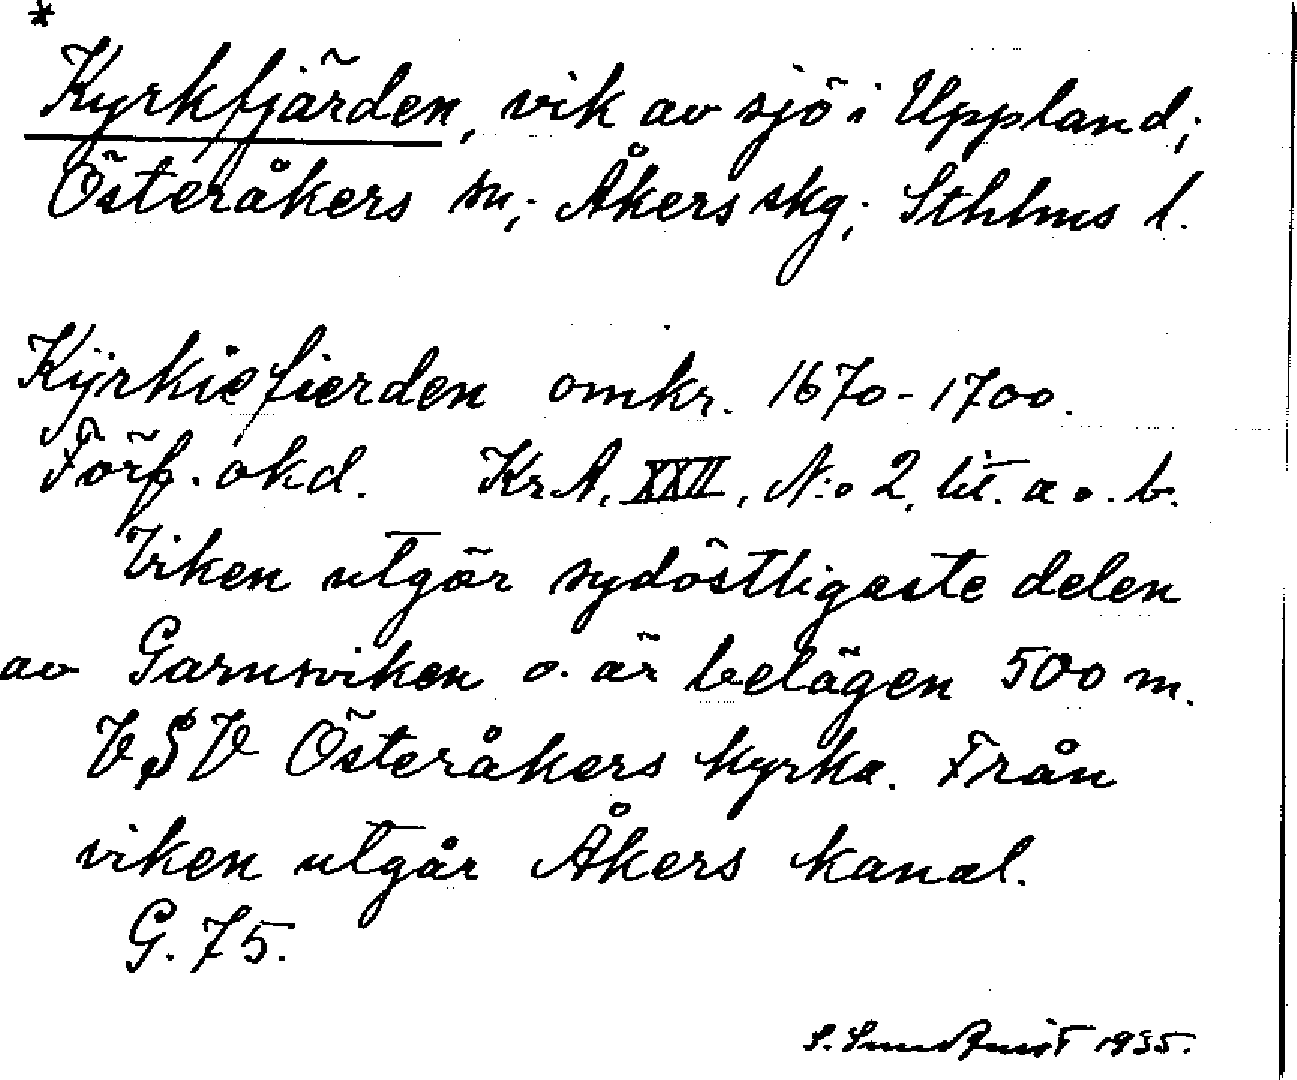 *
Kyrkfjärden, vik av sjö i Uppland;
Österåkers sn; Åkers skg; Sthlms l.
Kÿrkiefierden omkr. 1670-1700.
Förf. okd. Kr.A. XXII, N:o 2, lit. a o. b.
Viken utgör sydöstligaste delen
av Garnsviken o. är belägen 500 m.
VSV Österåkers kyrka. Från
viken utgår Åkers kanal.
G. 75.
S. Sundquist 1935.